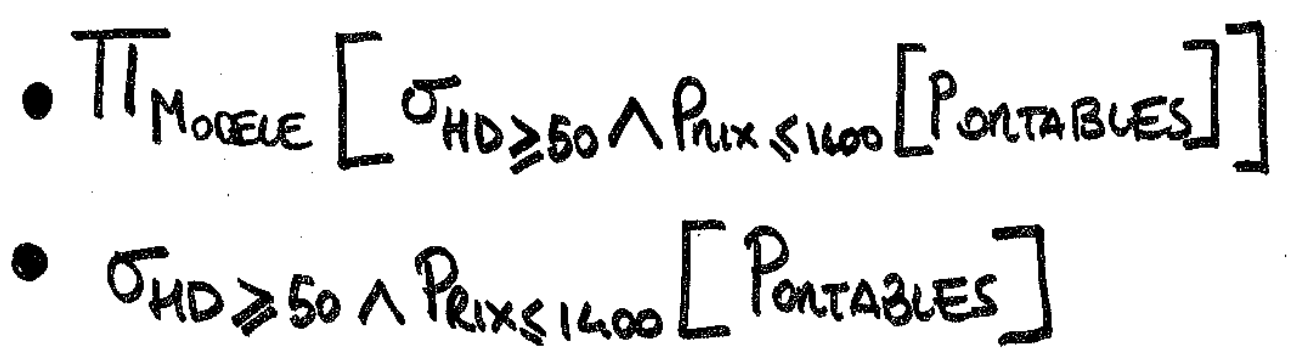 • Π MODELE [ σ HD≥50 ∧ PRIX≤1400 [PORTABLES] ]
• σ HD≥50 ∧ PRIX≤1400 [PORTABLES]